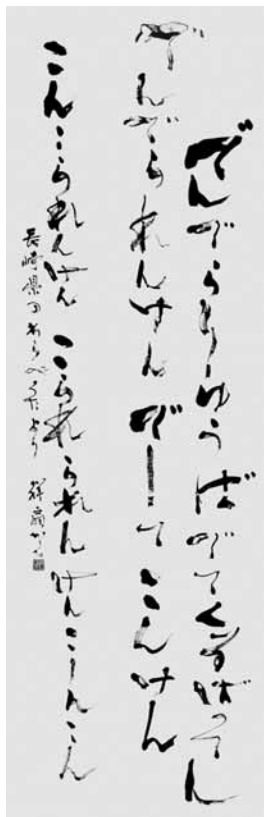 でんでらりゅうばでてくるばってん
でんでられんけんでーてこんけん
こんこられんけん こられられんけんこーんこん
長崎県のわらべうたより